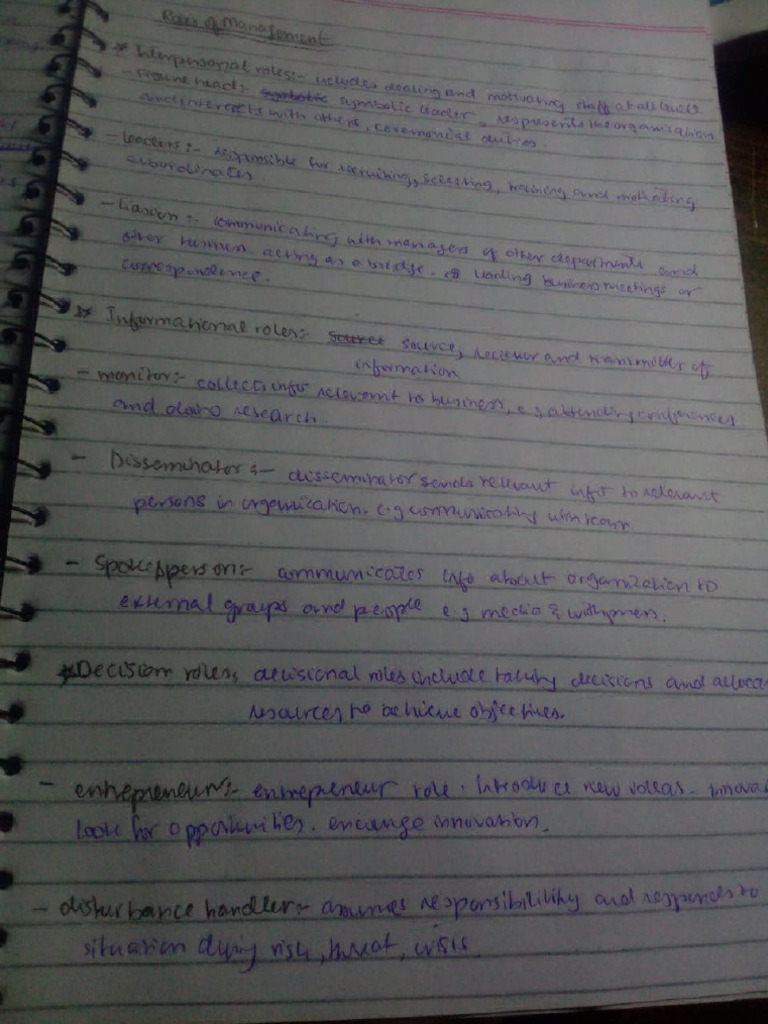 Roles of Management
* Interpersonal roles:- includes dealing and motivating staff at all levels
- Figure head:- symbolic symbolic leader, represents the organization
and interects with others, ceremonial duties.
- leaders:- responsible for recruiting, selecting, training and motivating
subordinates
- Liasion:- communicating with managers of other departments and
other business acting as a bridge. leading business meetings or
correspondence.
* Informational roles:- source, reciever and transmitter of
information
- monitor:- collects info relevant to business, e.g attending conferences
and doing research.
- Disseminator:- disseminator sends relevant info to relevant
persons in organization. e.g communicating with team
- Spokesperson:- communicates info about organization to
external groups and people e.g media &
*Decision roles, decisional roles include taking decisions and alloca
resources to achieve objectives.
- entrepreneur:- entrepreneur role. Introduce new ideas.
look for opportunities. encourage innovation.
- disturbance handler:- assumes responsibility and responds to
situation during risk, threat, crisis.